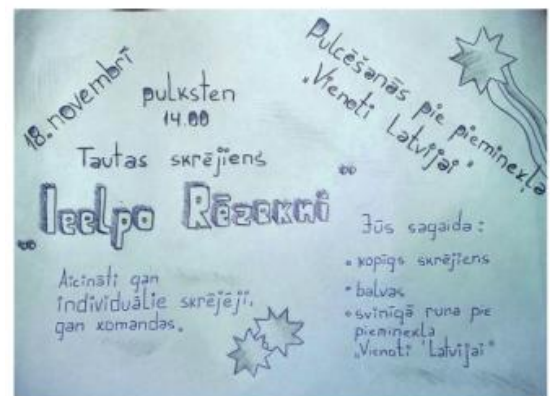 18. novembrī
pulksten
14.00
Pulcēšanās pie pieminekļa
"Vienoti Latvijai"
Tautas skrējiens
Ieelpo Rēzekni
Aicināti gan
individuālie skrējēji,
gan komandas.
Jūs sagaida:
• kopīgs skrējiens
• balvas
• svinīgā runa pie
pieminekļa
"Vienoti Latvijai"